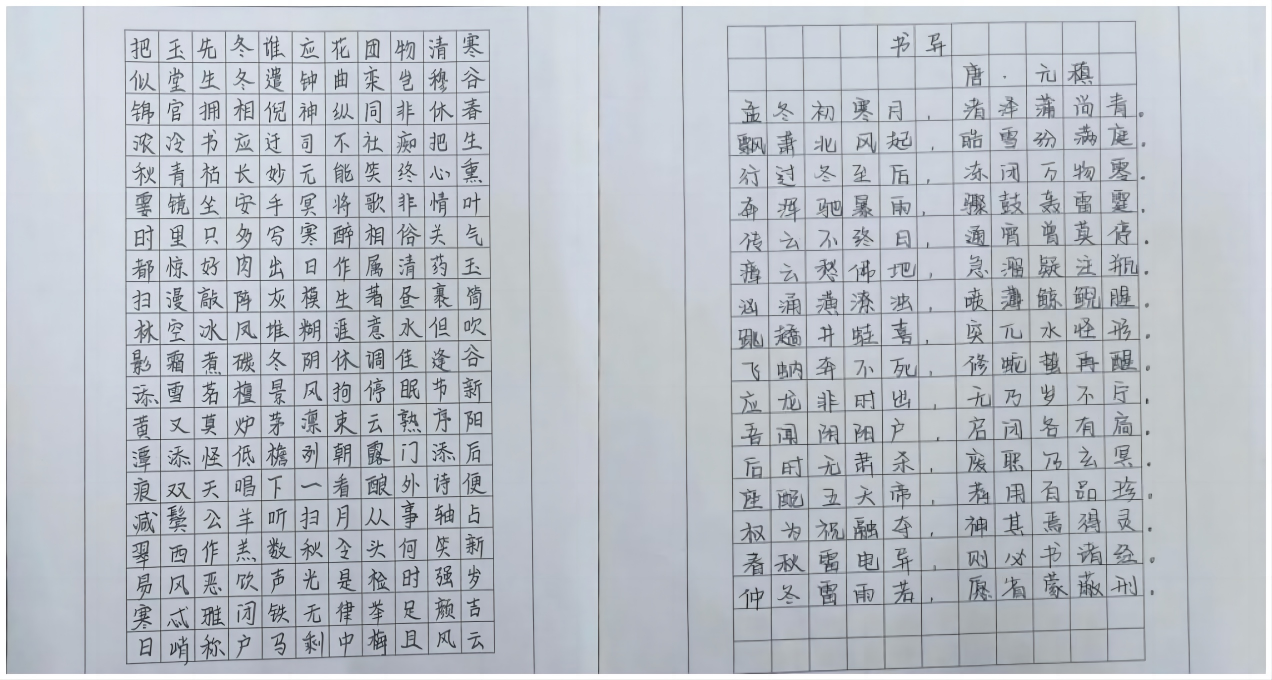 把玉先冬谁应花团物清寒
似堂生冬遣钟曲栾岂穆谷
锦官拥相倪神纵同非休春
浓冷书应迁司不社痴把生
秋青枯长妙元能笑终心熏
霎镜坐安手冥将歌非情叶
时里只多写寒醉相俗关气
都惊好肉出日作属清药玉
扫漫敲阵灰模生著昼裹筒
林空冰凤堆糊涯意水但吹
影霜煮磯冬阴休调佳逢谷
添雪茗檀景风狗停眠节新
黄又莫炉茅凛束云熟序阳
潭添怪低檐列朝露门添后
痕双天唱下一看酿外诗便
减鬓公羊听扫月从事轴占
翠西作羔数秋令头何笑新
易风恶饮声光是检时强岁
寒忒雅闭铁无律举足颓吉
日峭称户马剩中梅且风云
书异
唐·元稹
孟冬初寒月，渚泽蒲尚青。
飘萧北风起，皓雪纷满庭。
行过冬至后，冻闭万物零。
奔浑驰暴雨，骤鼓轰雷霆。
传云不终日，通宵曾莫停。
瘴云愁拂地，急溜疑注瓶。
汹涌潢潦浊，喷薄鲸鲵腥。
跳趫井蛙喜，突兀水怪形。
飞蚋奔不死，修蛇蛰再醒。
应龙非时出，无乃岁不宁。
吾闻阴阳户，启闭各有扃。
后时无肃杀，废职乃玄冥。
座配五天帝，荐用百品珍。
权为祝融夺，神其焉得灵。
春秋雷电异，则必书诸经。
仲冬雷雨苦，愿省蒙蔽刑。